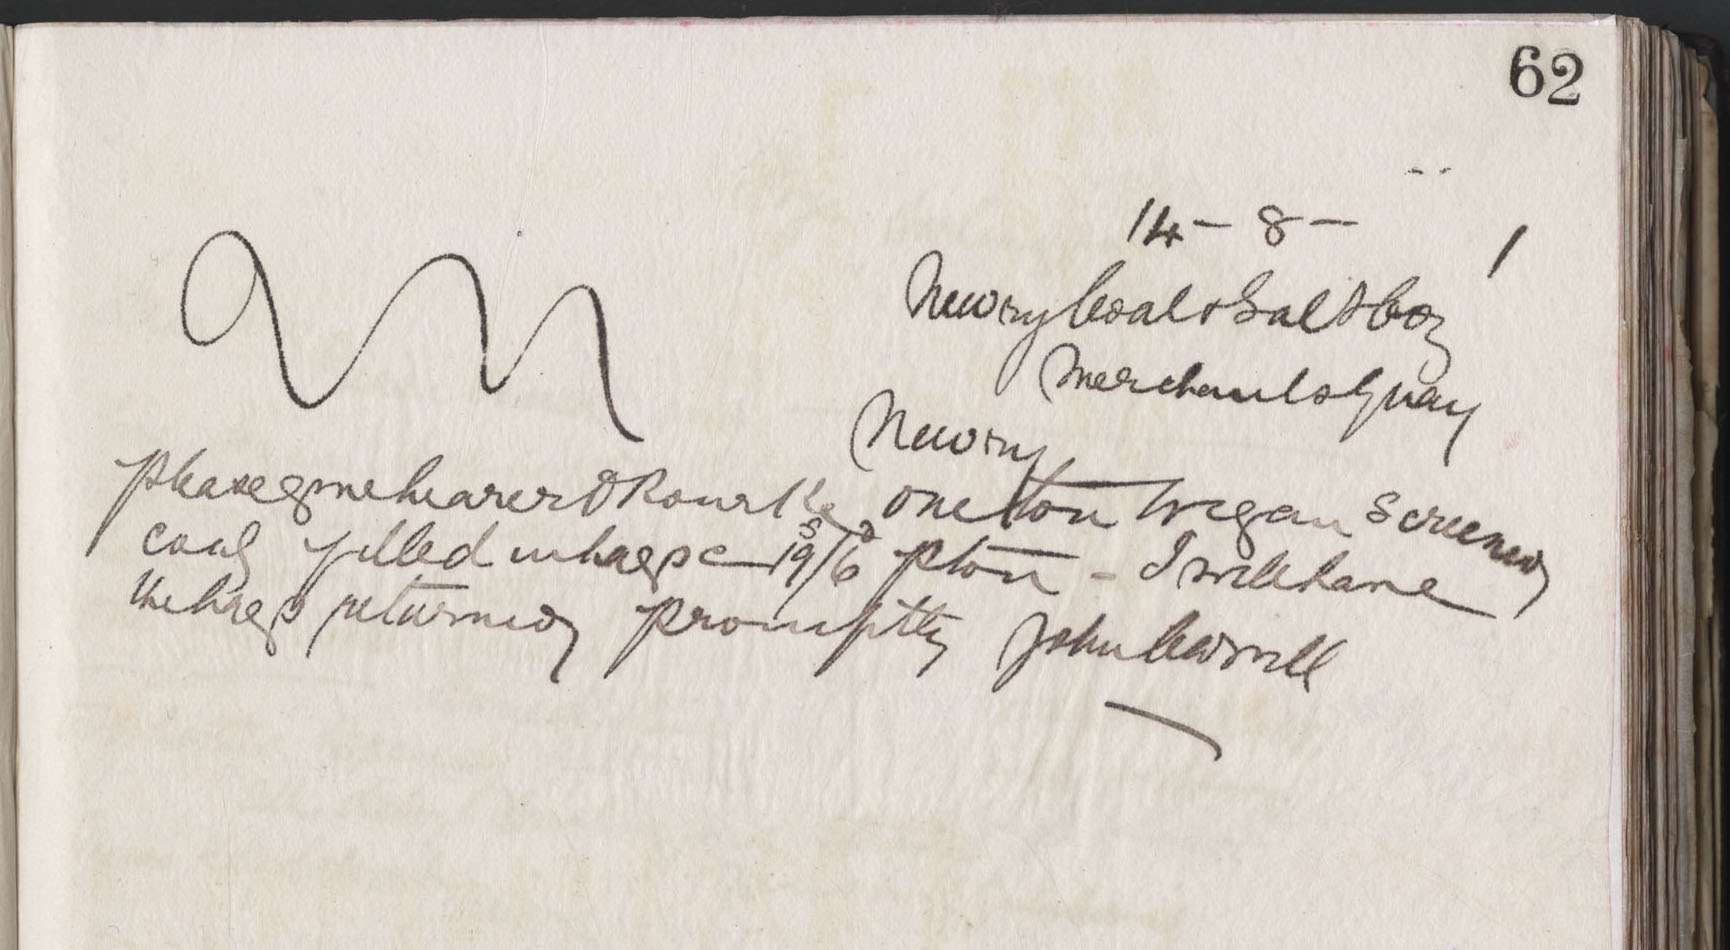 62
14 - 8 - 1
Newry Coal & Salt Coy
Merchants Quay
Newry
M
please give bearer O Rourke one ton Wigan Screened
coal filled in bags @ 19s/6d p ton - I will have
the bags returned promptly John Carvill